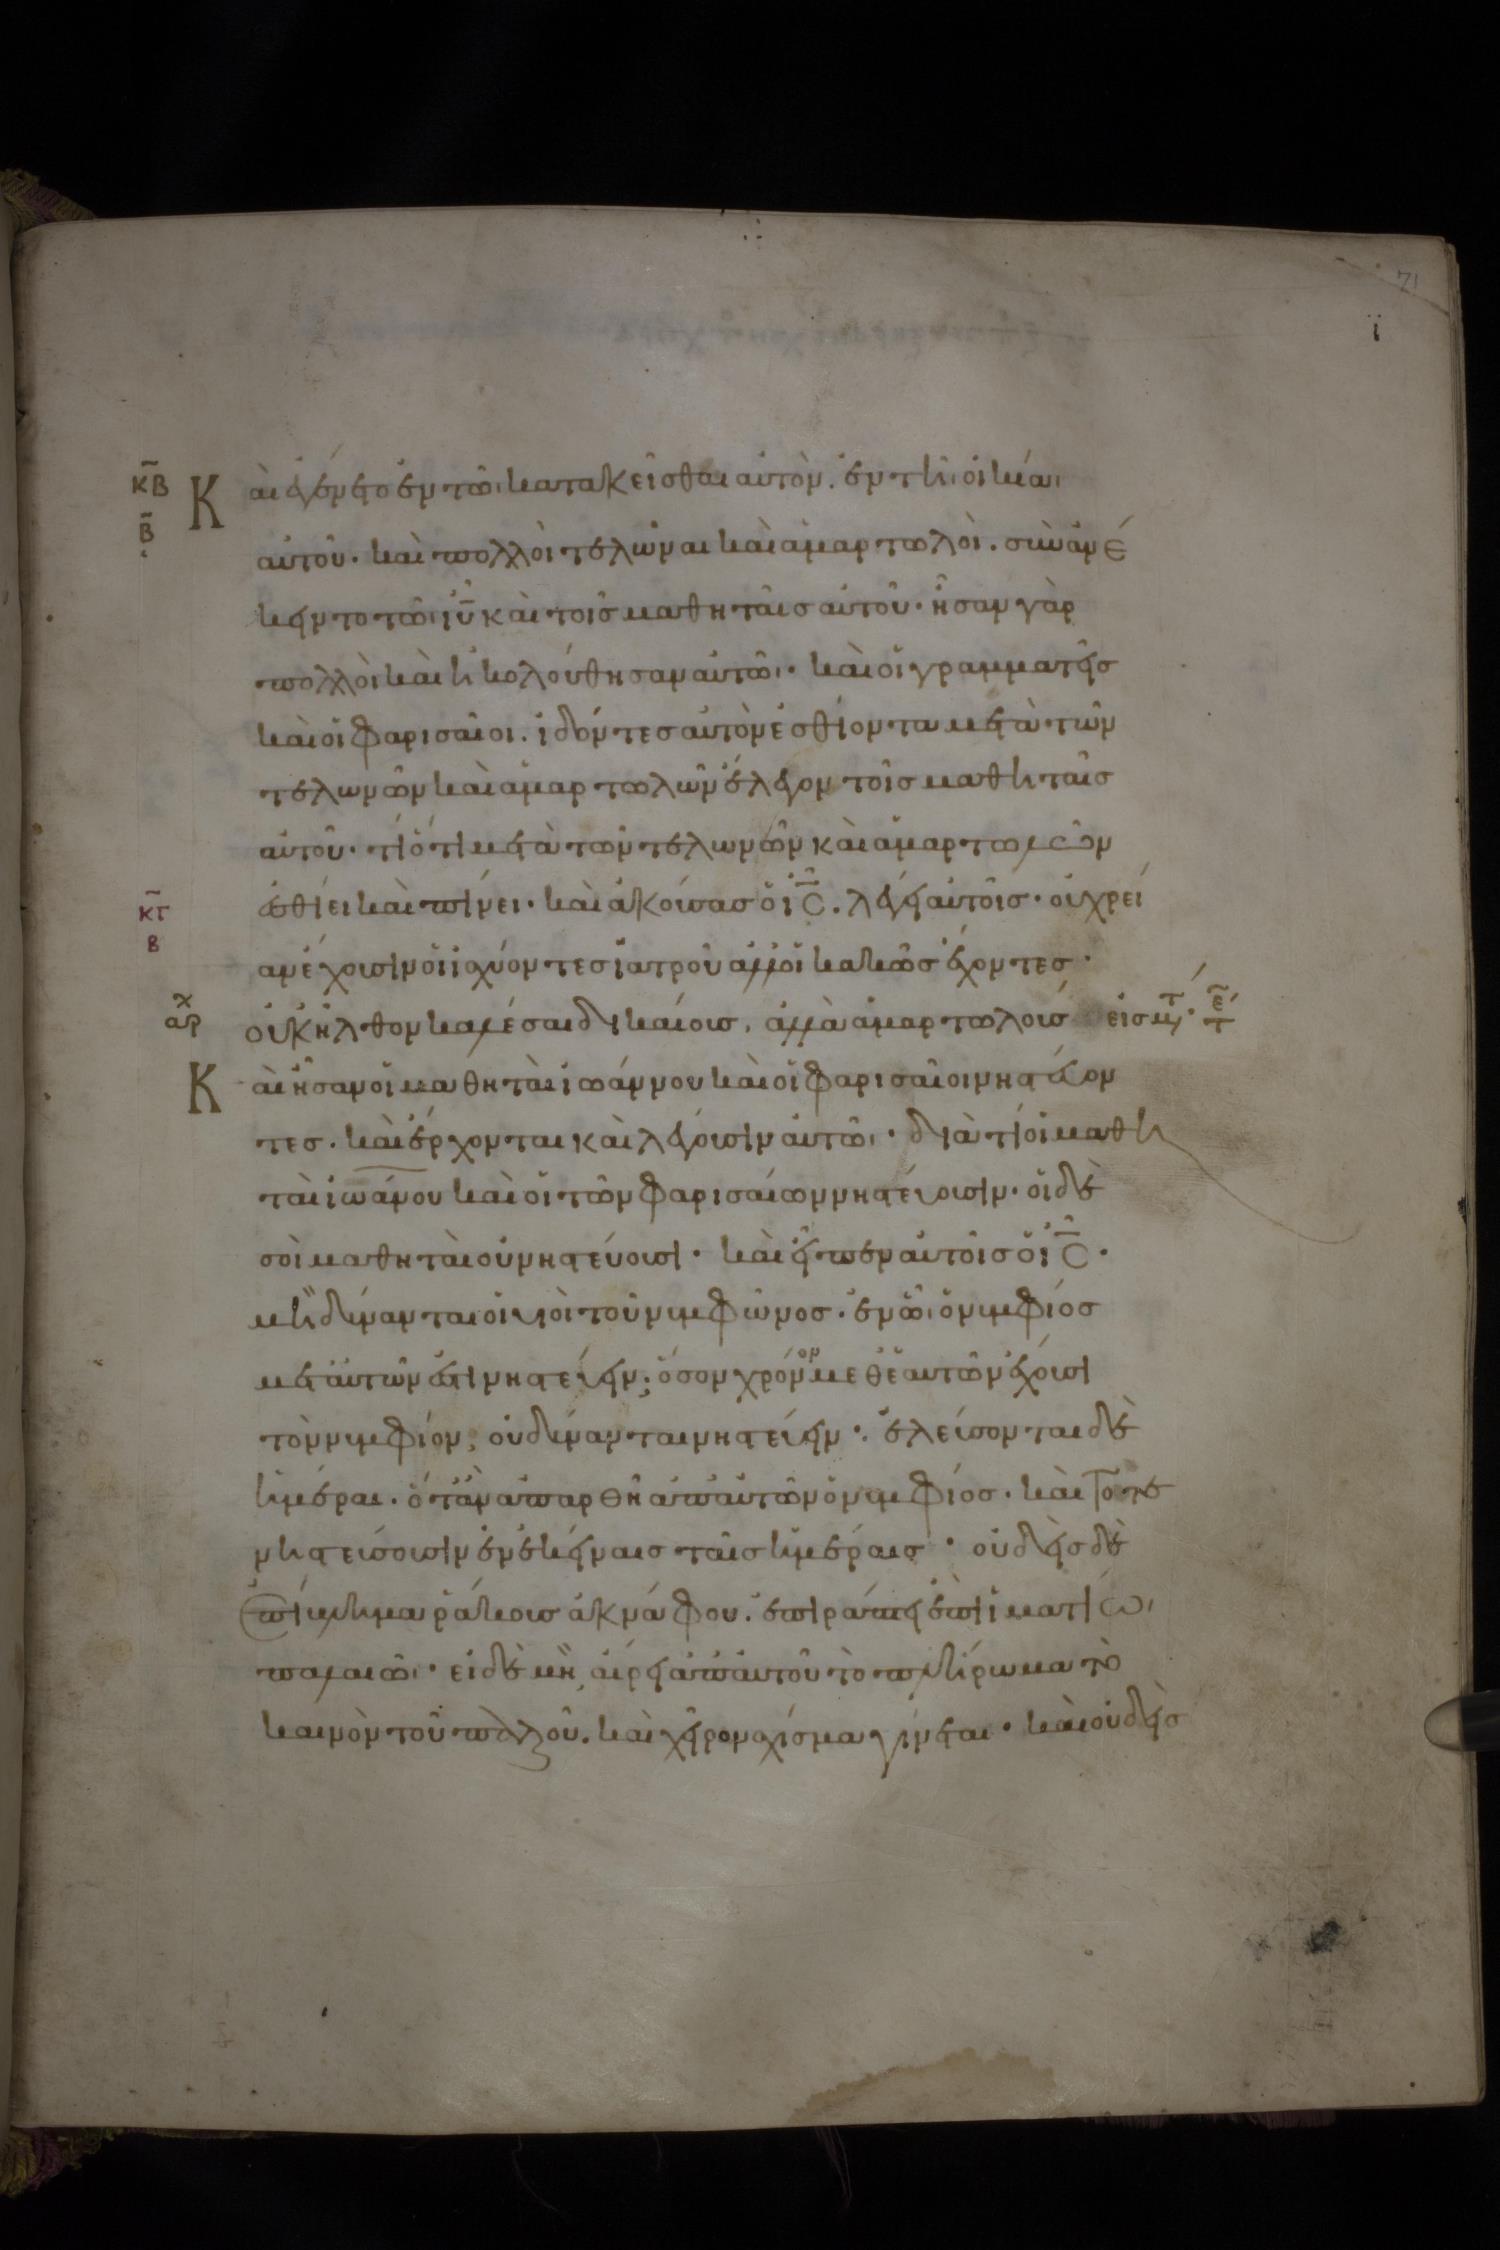 71
ϊ
κ̄β̄ Καὶ ἐγένετο ἐν τῶι κατακεῖσθαι αὐτὸν. ἐν τῆι οἰκίαι
β̄ αὐτοῦ· καὶ πολλοὶ τελῶναι καὶ ἁμαρτωλοὶ. συνανέ
κειντο τῶι ἰῡ καὶ τοῖς μαθηταῖς αὐτοῦ· ἦσαν γὰρ
πολλοὶ καὶ ἠκολούθησαν αὐτῶι· καὶ οἱ γραμματεῖς
καὶ οἱ φαρισαῖοι. ἰδόντες αὐτὸν ἐσθίοντα μετὰ τῶν
τελωνῶν καὶ ἁμαρτωλῶν ἔλεγον τοῖς μαθηταῖς
αὐτοῦ· τί ὅτι μετὰ τῶν τελωνῶν καὶ ἁμαρτωλῶν
κ̄γ̄ ἐσθίει καὶ πίνει· καὶ ἀκούσας ὁ ῑς̄. λέγει αὐτοῖς· οὐ χρεί
β αν ἔχουσιν οἱ ἰσχύοντες ἰατροῦ ἀλλ' οἱ κακῶς ἔχοντες·
αρχ οὐκ ἦλθον καλέσαι δικαίους, ἀλλὰ ἁμαρτωλοὺς εἰς μτ· ε̄ τ
Καὶ ἦσαν οἱ μαθηταὶ ἰωάννου καὶ οἱ φαρισαῖοι νηστεύον
τες. καὶ ἔρχονται καὶ λέγουσιν αὐτῶι· διὰ τί οἱ μαθη
ταὶ ἰωάνου καὶ οἱ τῶν φαρισαίων νηστεύουσιν· οἱ δὲ
σοὶ μαθηταὶ οὐ νηστεύουσι· καὶ εἶπεν αὐτοῖς ὁ ῑς̄·
μὴ δύνανται οἱ υἱοὶ τοῦ νυμφῶνος. ἐν ὧι ὁ νυμφίος
μετ' αὐτῶν ἐστι νηστεύειν; ὅσον χρόνον μεθ' ἑαυτῶν ἔχουσι
τὸν νυμφίον, οὐ δύνανται νηστεύειν· ἐλεύσονται δὲ
ἡμέραι. ὅταν ἀπαρθῇ ἀπ' αὐτῶν ὁ νυμφίος. καὶ τότε
νηστεύσουσιν ἐν ἐκείναις ταῖς ἡμέραις· οὐδεὶς δὲ
ἐπίβλημα ῥάκους ἀκνάφου. ἐπιράπτει ἐπὶ ἱματίωι
παλαιῶι· εἰ δὲ μὴ, αἴρει ἀπ' αὐτοῦ τὸ πλήρωμα τὸ
καινὸν τοῦ παλαιοῦ. καὶ χεῖρον σχίσμα γίνεται· καὶ οὐδεὶς